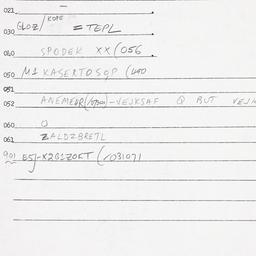 021 —
030 GLOZ/KOPE = TEPL
040 SPODEK XX (056
050 M1 KASERTOSOP (
051
052 ANEMEER(/0700)-VEJKSAF Q BUT VEJK
060 O
061 ZALDZBRETL
901 B5J-X2G1ZOKT (/031071